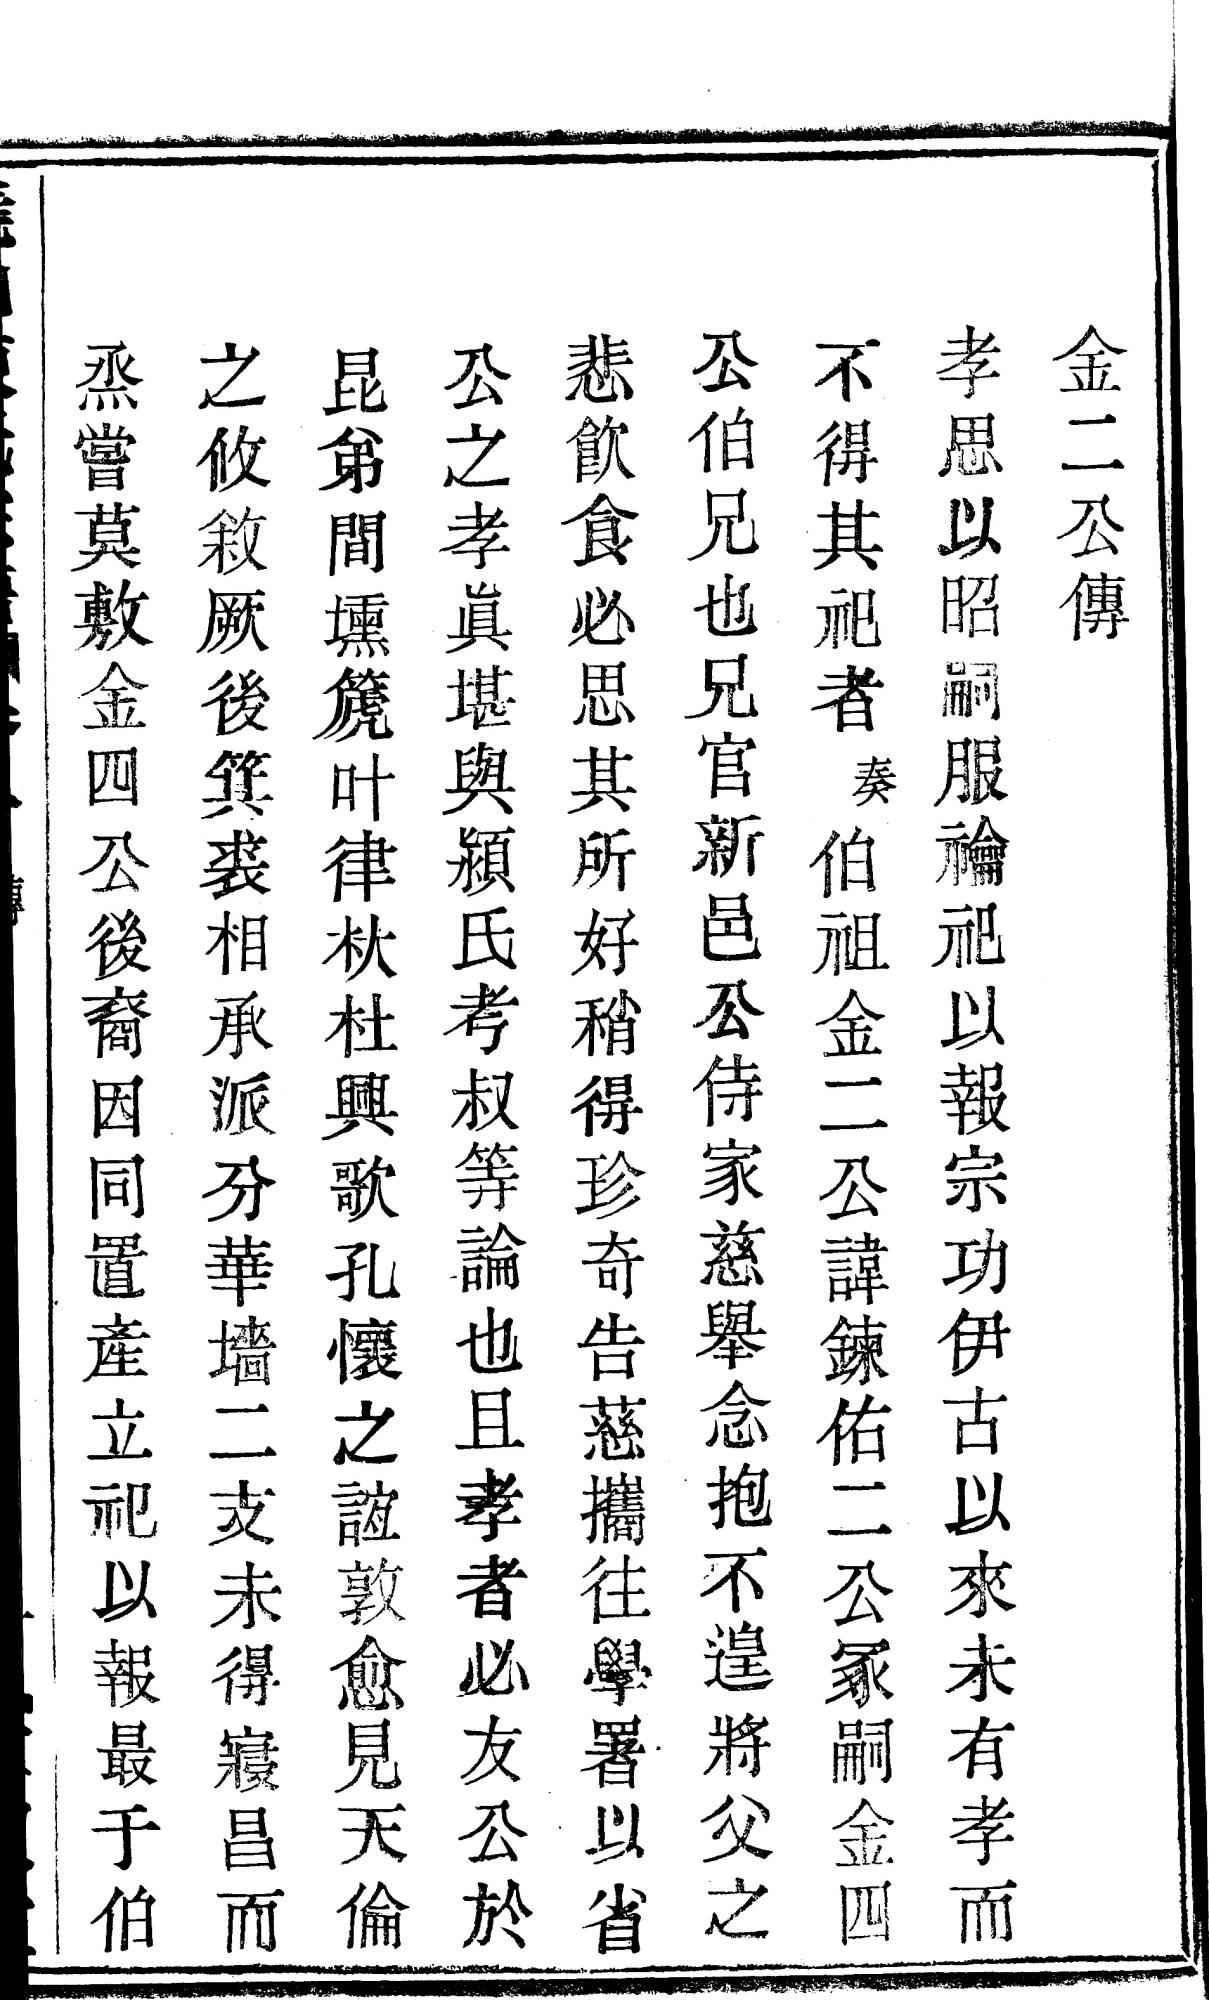 金二公傳
孝思以昭嗣服禴祀以報宗功伊古以來未有孝而
不得其祀者奏伯祖金二公諱鍊佑二公冢嗣金四
公伯兄也兄官新邑公侍家慈舉念抱不遑將父之
悲飲食必思其所好稍得珍奇告慈攜往學署以省
公之孝眞堪與潁氏考叔等論也且孝者必友公於
昆弟間壎篪叶律杕杜興歌孔懷之誼敦愈見天倫
之攸敘厥後箕裘相承派分華墻二支未得寢昌而
烝嘗莫敷金四公後裔因同置產立祀以報最于伯